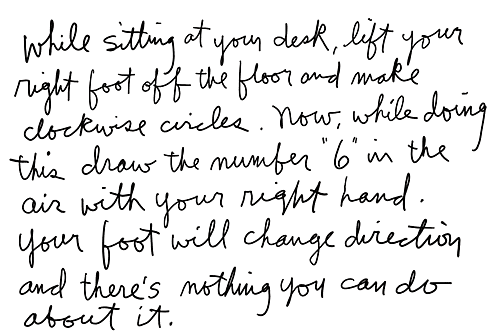 While sitting at your desk, lift your
right foot off the floor and make
clockwise circles. Now, while doing
this draw the number "6" in the
air with your right hand.
Your foot will change direction
and there's nothing you can do
about it.